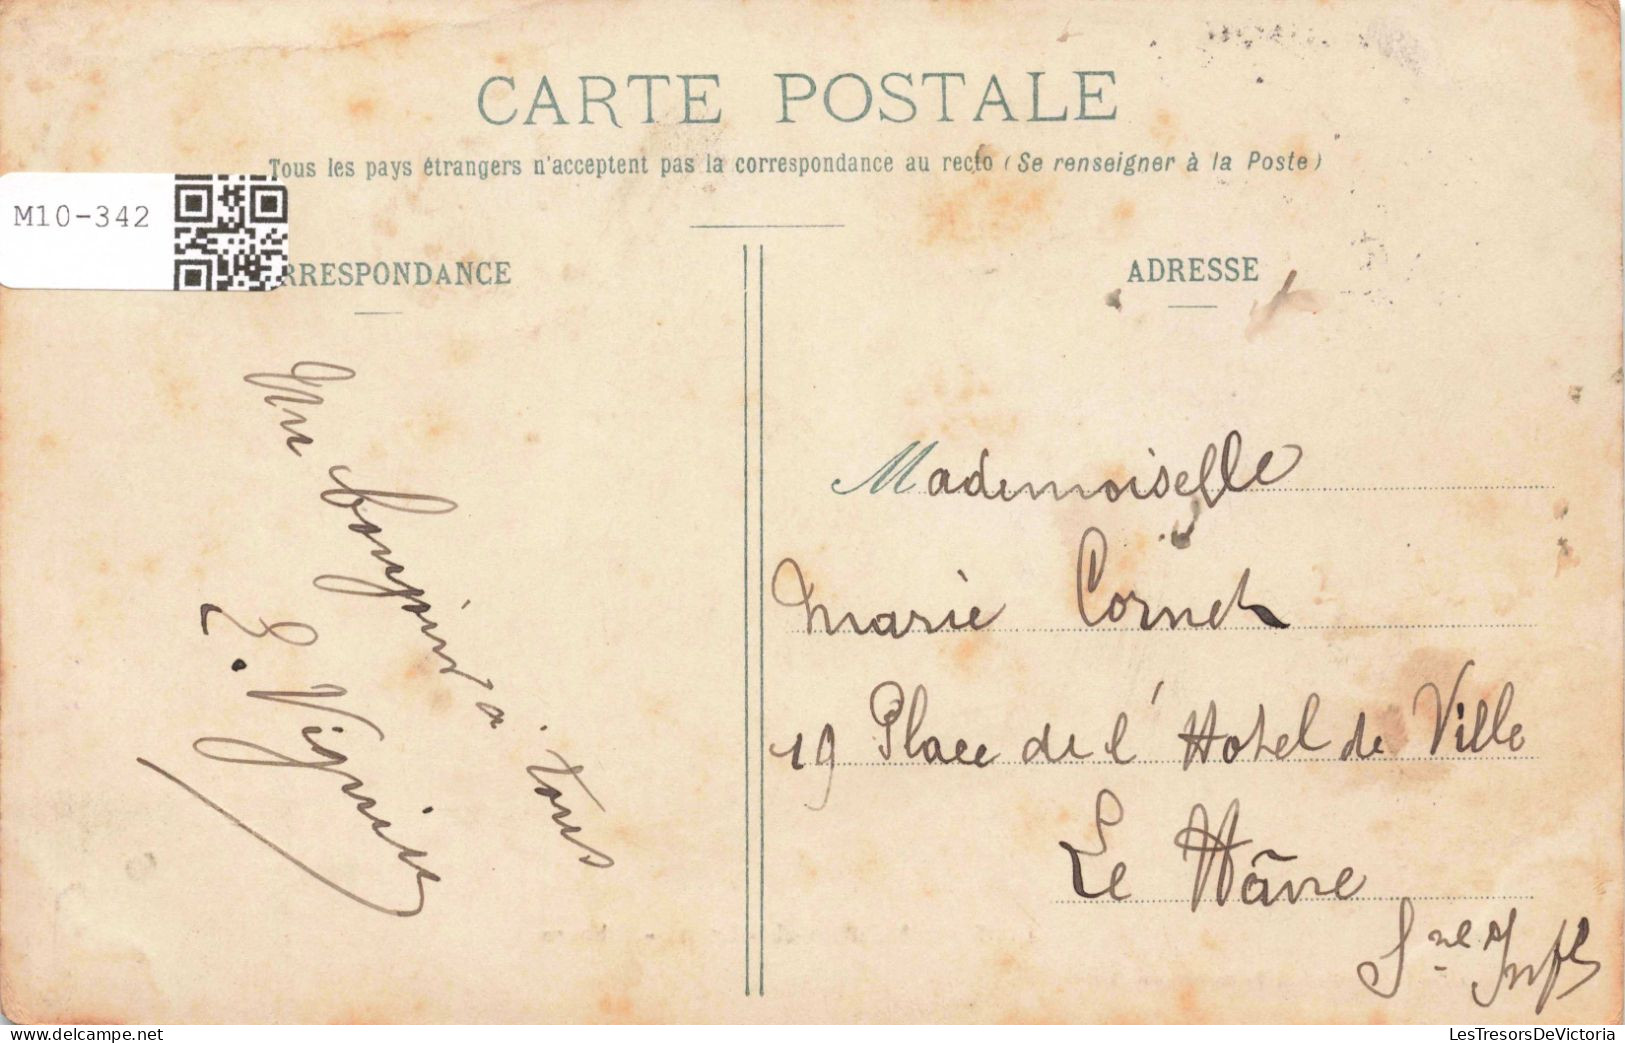 CARTE POSTALE
Tous les pays étrangers n'acceptent pas la correspondance au recto (Se renseigner à la Poste)
M10-342
RRESPONDANCE
ADRESSE
Un bonjour a tous
E. Vignier
Mademoiselle
Marie Cornet
19 Place de l'Hotel de Ville
Le Hâvre
Sne Infre
LesTresorsDeVictoria